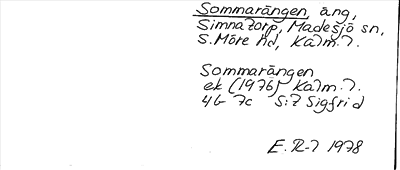 Sommarängen, äng,
Simnatorp, Madesjö sn,
S. Möre hd, Kalm. l.
Sommarängen
ek (1976) Kalm. l.
4G 7c S:7 Sigfrid
E. R-l 1978